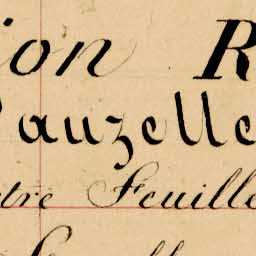 ion R
Pauzelle
tre Feuille